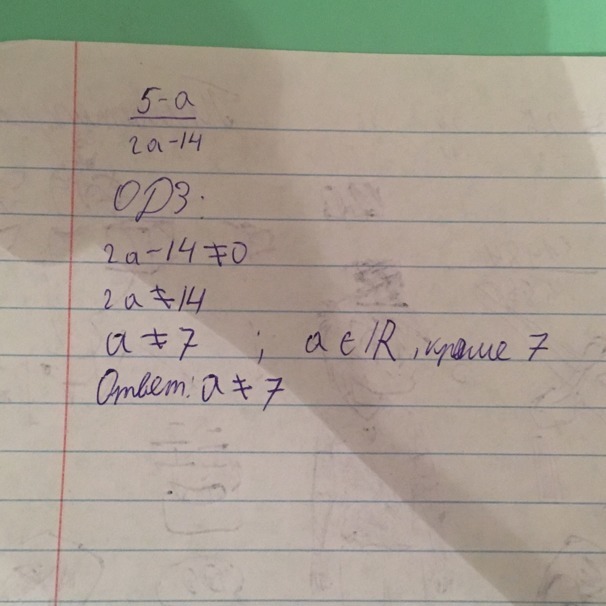 5-a
2a-14
ОДЗ:
2a-14≠0
2a≠14
a≠7 ; a∈ℝ, кроме 7
Ответ: a≠7